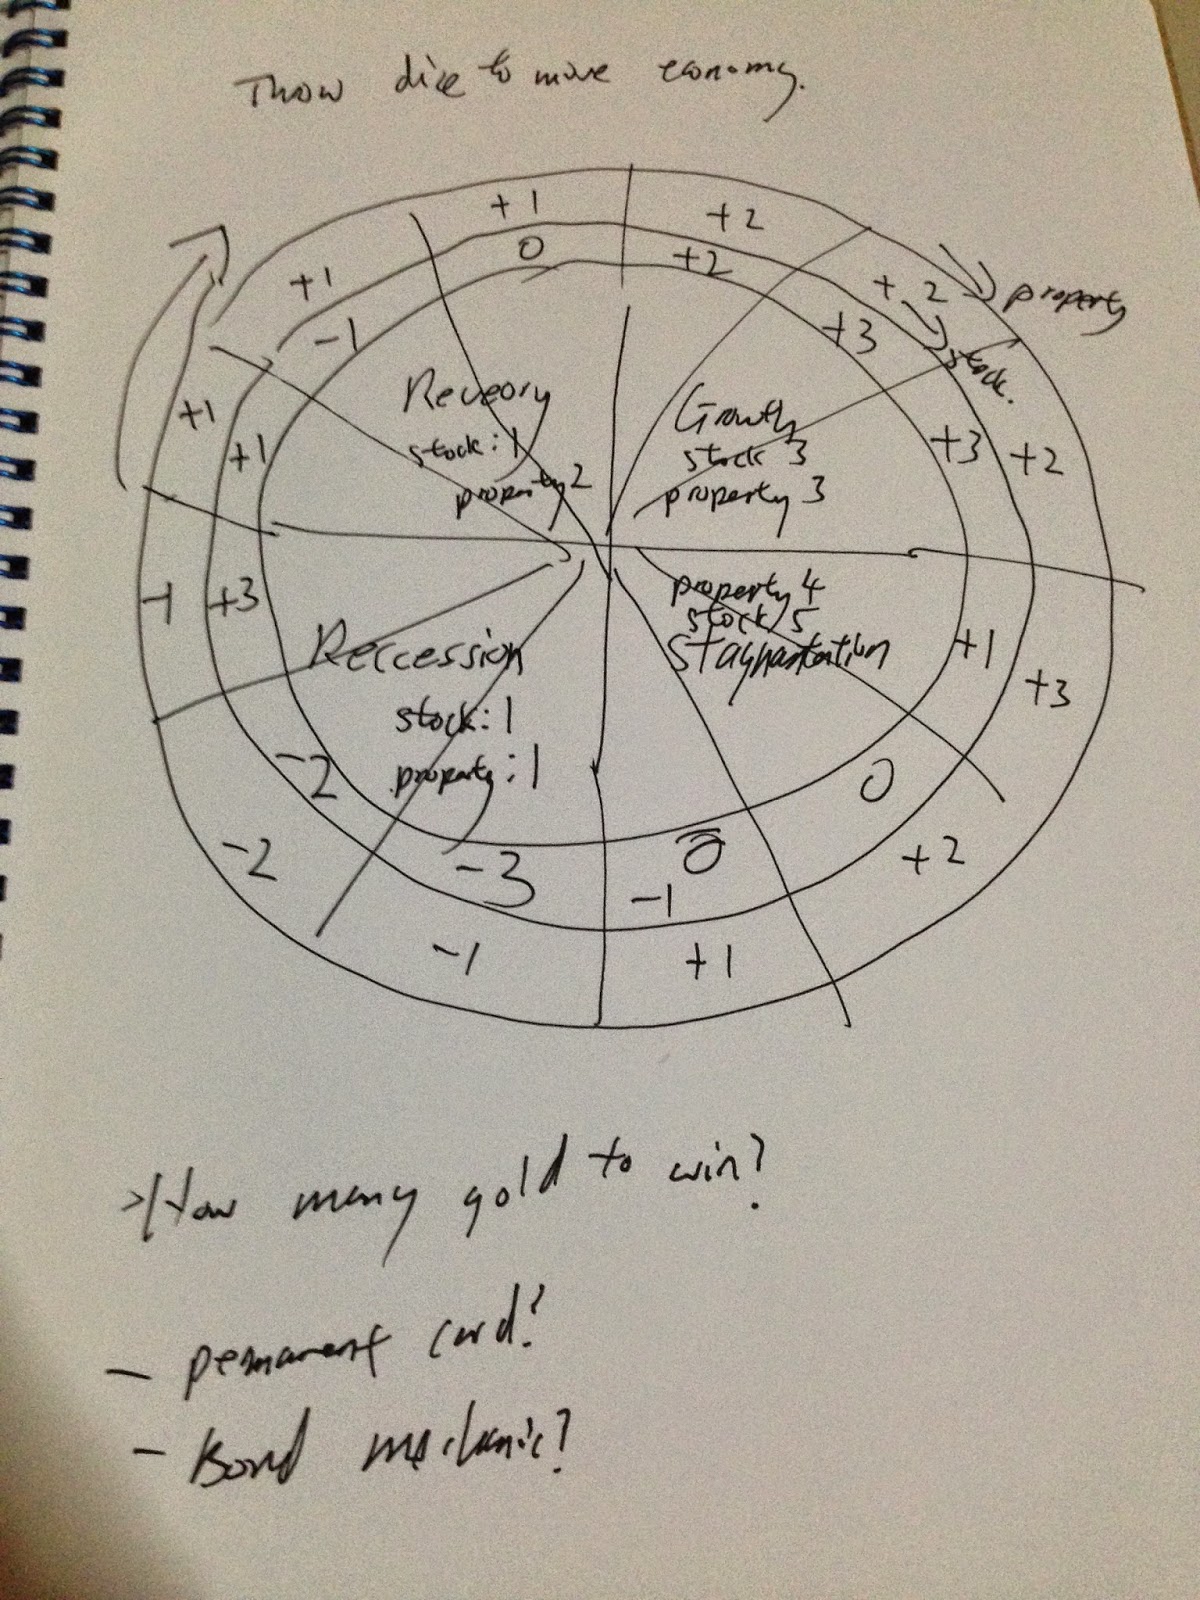 Throw dice to move economy.
+1
+2
+1
0
+2
+2
property
-1
+3
stock.
+1
Reveory
Growth
+1
stock: 1
stock 3
+3
+2
property 2
property 3
-1
+3
property 4
stock 5
Reccession
Stagnantation
+1
+3
stock: 1
-2
property: 1
0
-2
-3
0
+2
-1
-1
+1
>How many gold to win?
- permanent card?
- Bond mechanic?